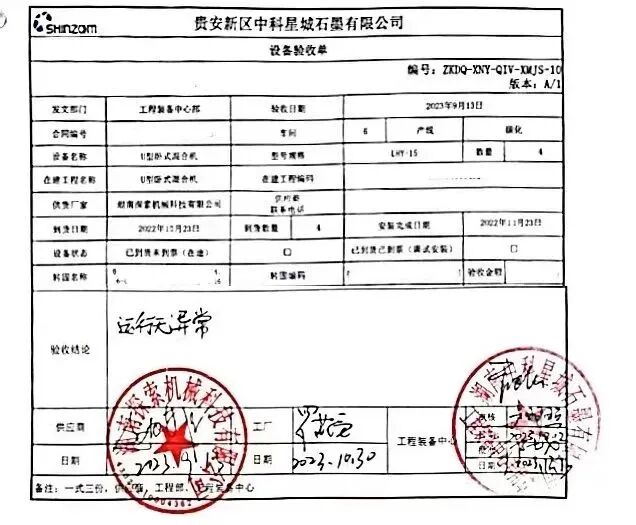 SHINZOM
贵安新区中科星城石墨有限公司
设备验收单
编号：ZKDQ-XNY-QIV-XMJS-10
版本：A/1
发文部门 工程装备中心部 验收日期 2023年9月13日
合同编号 车间 6 产线 碳化
设备名称 U型卧式混合机 型号规格 LHY-15 数量 4
在建工程名称 U型卧式混合机 在建工程编码
供货厂家 湖南探索机械科技有限公司 供应商联系电话
到货日期 2022年10月23日 到货数量 4 安装完成日期 2022年11月23日
设备状态 已到货未到票（在途） □ 已到货已到票（调试安装） □
转固名称 转固编码 验收金额
验收结论 运行无异常
供应商 工厂 工程装备中心 审核
日期 2023.10.30 日期
备注：一式三份，供应商，工程部，工程装备中心
湖南探索机械科技有限公司